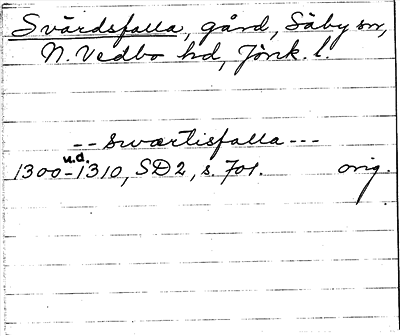 Svärdsfalla, gård, Säby sn,
N. Vedbo hd, Jönk. l.
-- swærtisfalla ---
u.d.
1300-1310, SD 2, s. 701. orig.